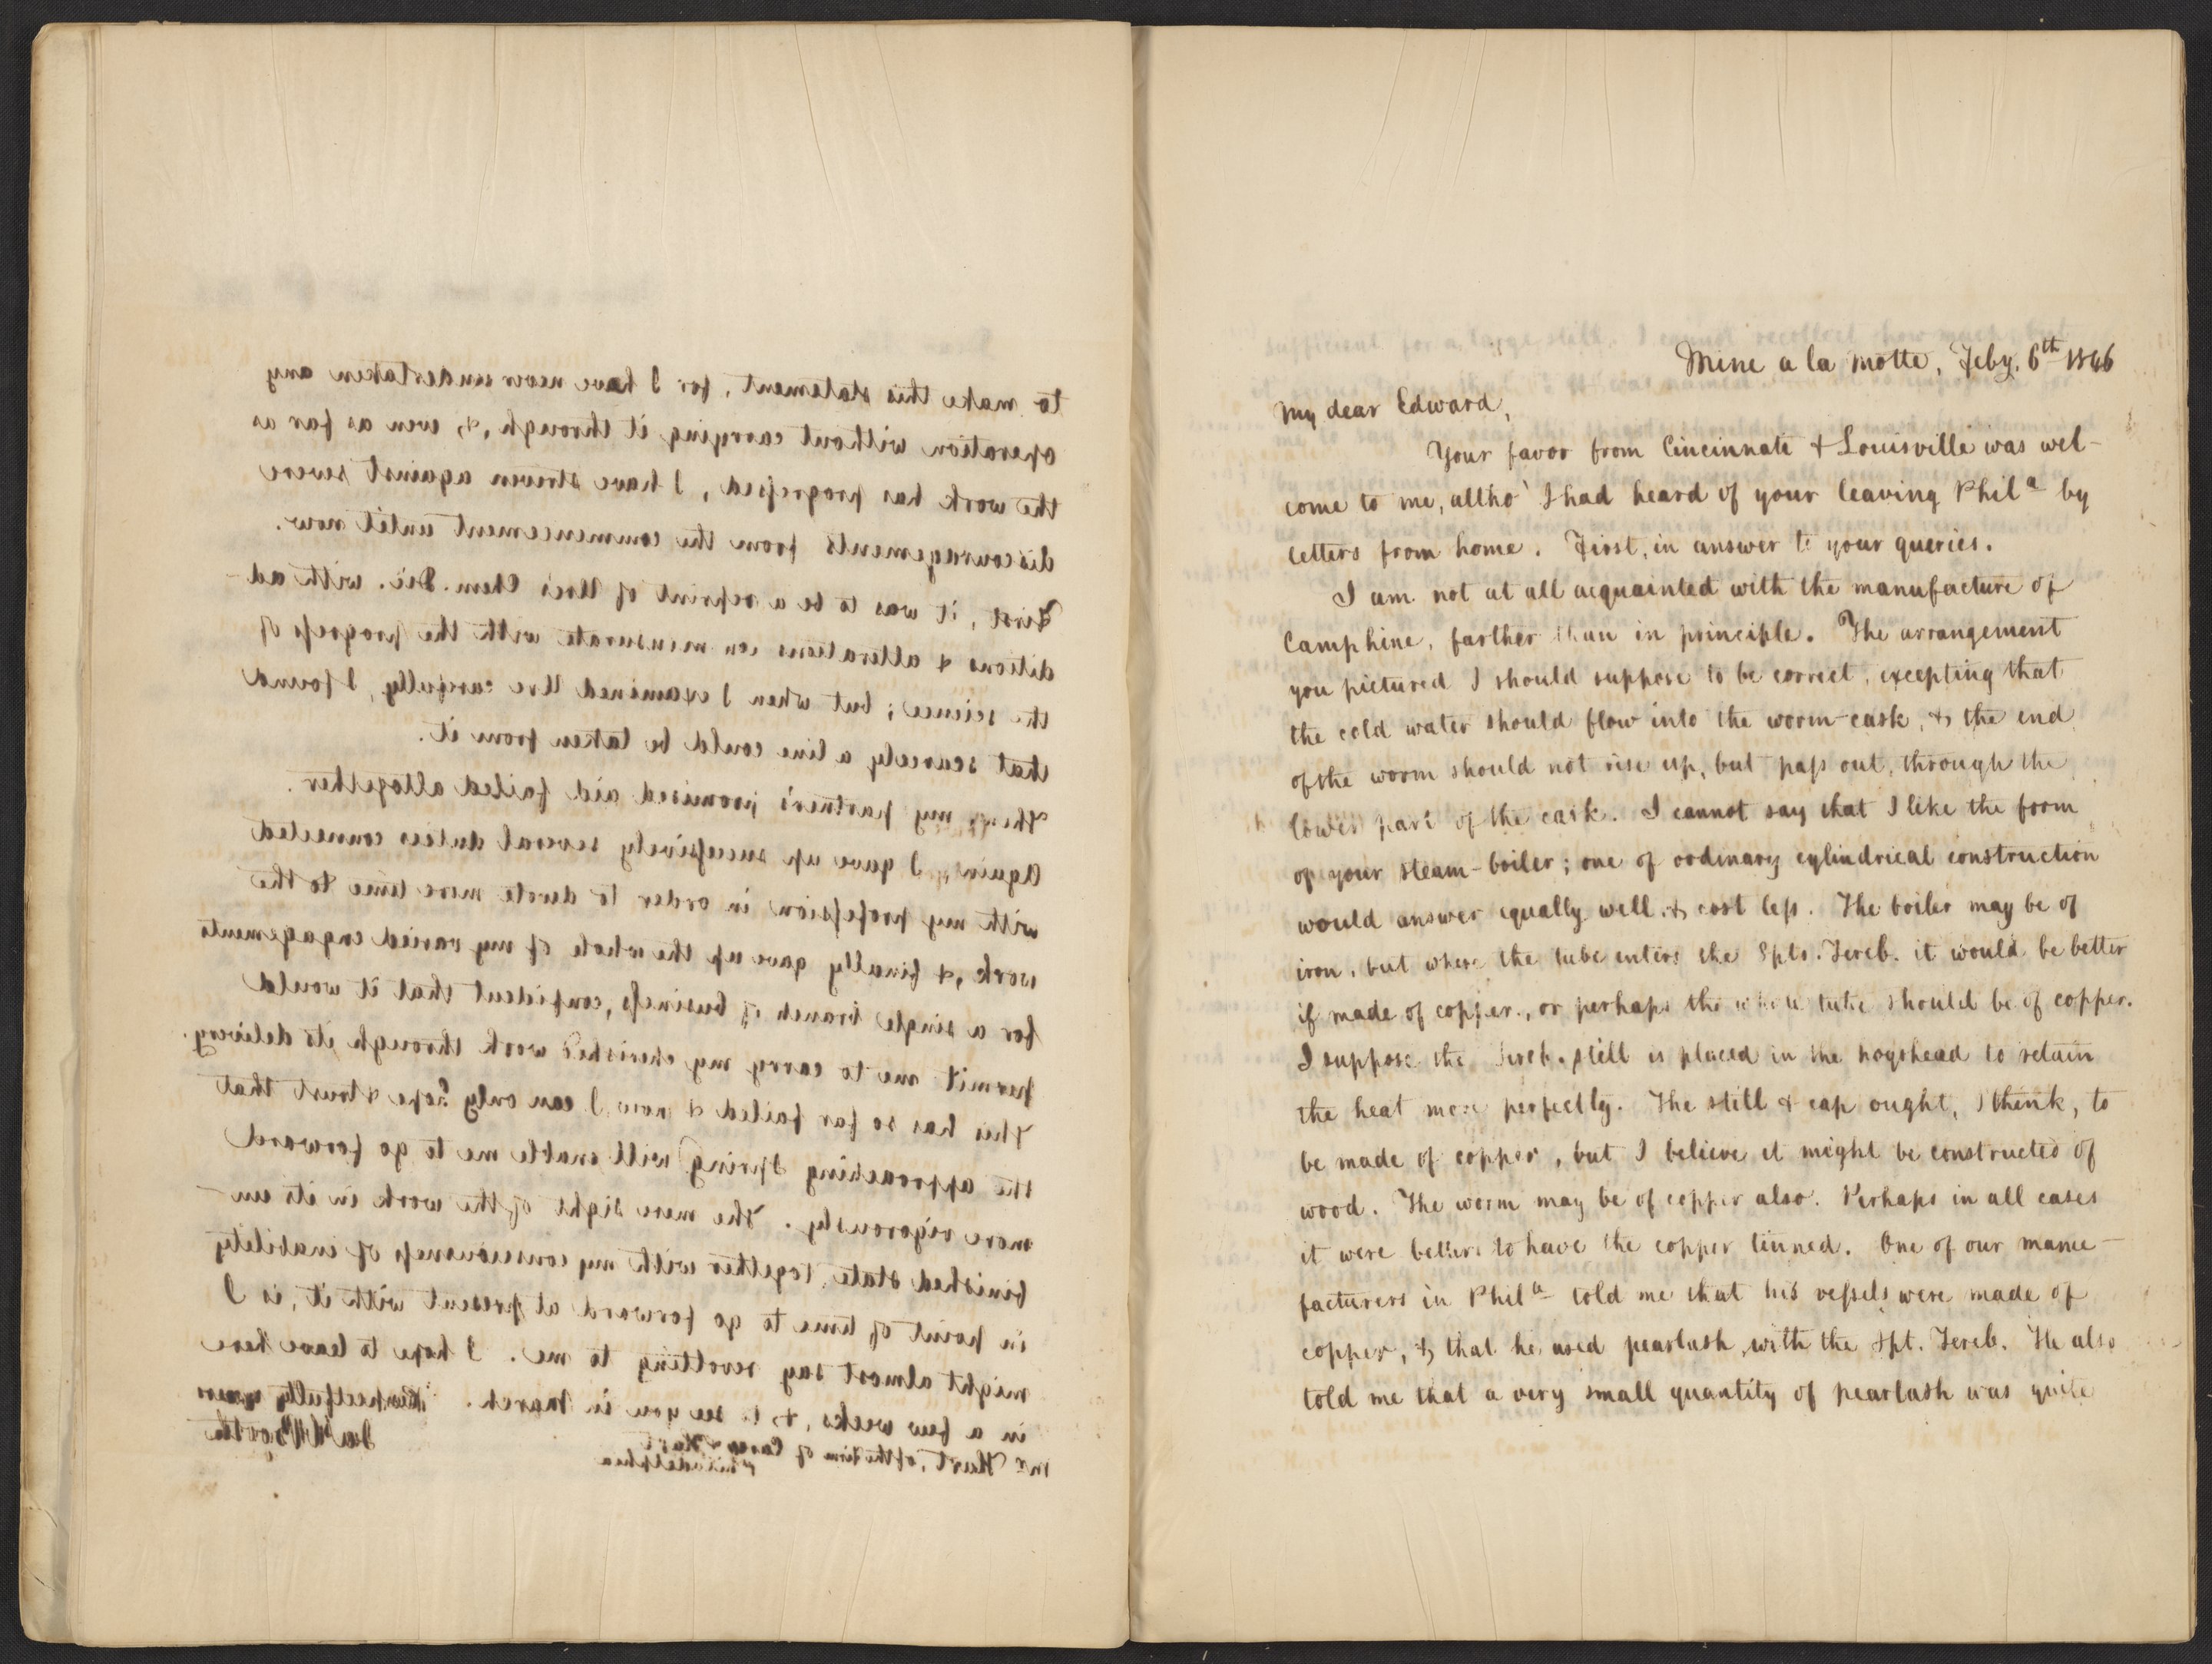 to make this statement, for I have never undertaken any
operation without carrying it through, &, even as far as
the work has progressed, I have striven against severe
discouragements from the commencement until now.
First, it was to be a reprint of Ure's Chem. Dic. with ad-
ditions & alterations con mensurate with the progress of
the science; but when I examined Ure carefully, I found
that scarcely a line could be taken from it.
Then, my partner's promised aid failed altogether.
Again, I gave up successively several duties connected
with my profession in order to devote more time to the
work, & finally gave up the whole of my varied engagements
for a single branch of business, confident that it would
permit me to carry my cherished work through its delivery.
This has so far failed & now I can only hope & trust that
the approaching Spring will enable me to go forward
more vigorously. The mere sight of the work in its un-
finished state, together with my consciousness of inability
in point of time to go forward at present with it, is I
might almost say revolting to me. I hope to leave here
in a few weeks, & to see you in March. Respectfully yours
Jas. C. Booth
Mr Hart, of the firm of Carey & Hart
Philadelphia
Mine a la Motte, Feby. 6th 1846
My dear Edward,
Your favor from Cincinnati & Louisville was wel-
come to me, altho' I had heard of your leaving Phila by
letters from home. First, in answer to your queries.
I am not at all acquainted with the manufacture of
Camphine, farther than in principle. The arrangement
you pictured I should suppose to be correct, excepting that
the cold water should flow into the worm-cask, & the end
of the worm should not rise up, but pass out, through the
lower part of the cask. I cannot say that I like the form
of your steam-boiler; one of ordinary cylindrical construction
would answer equally well, & cost less. The boiler may be of
iron, but where the tube enters the Spts. Tereb. it would be better
if made of copper, or perhaps the whole tube should be of copper.
I suppose the Tereb. still is placed in the hogshead to retain
the heat more perfectly. The still & cap ought, I think, to
be made of copper, but I believe it might be constructed of
wood. The worm may be of copper also. Perhaps in all cases
it were better to have the copper tinned. One of our manu-
facturers in Phila told me that his vessels were made of
copper, & that he used pearlash with the Spt. Tereb. He also
told me that a very small quantity of pearlash was quite